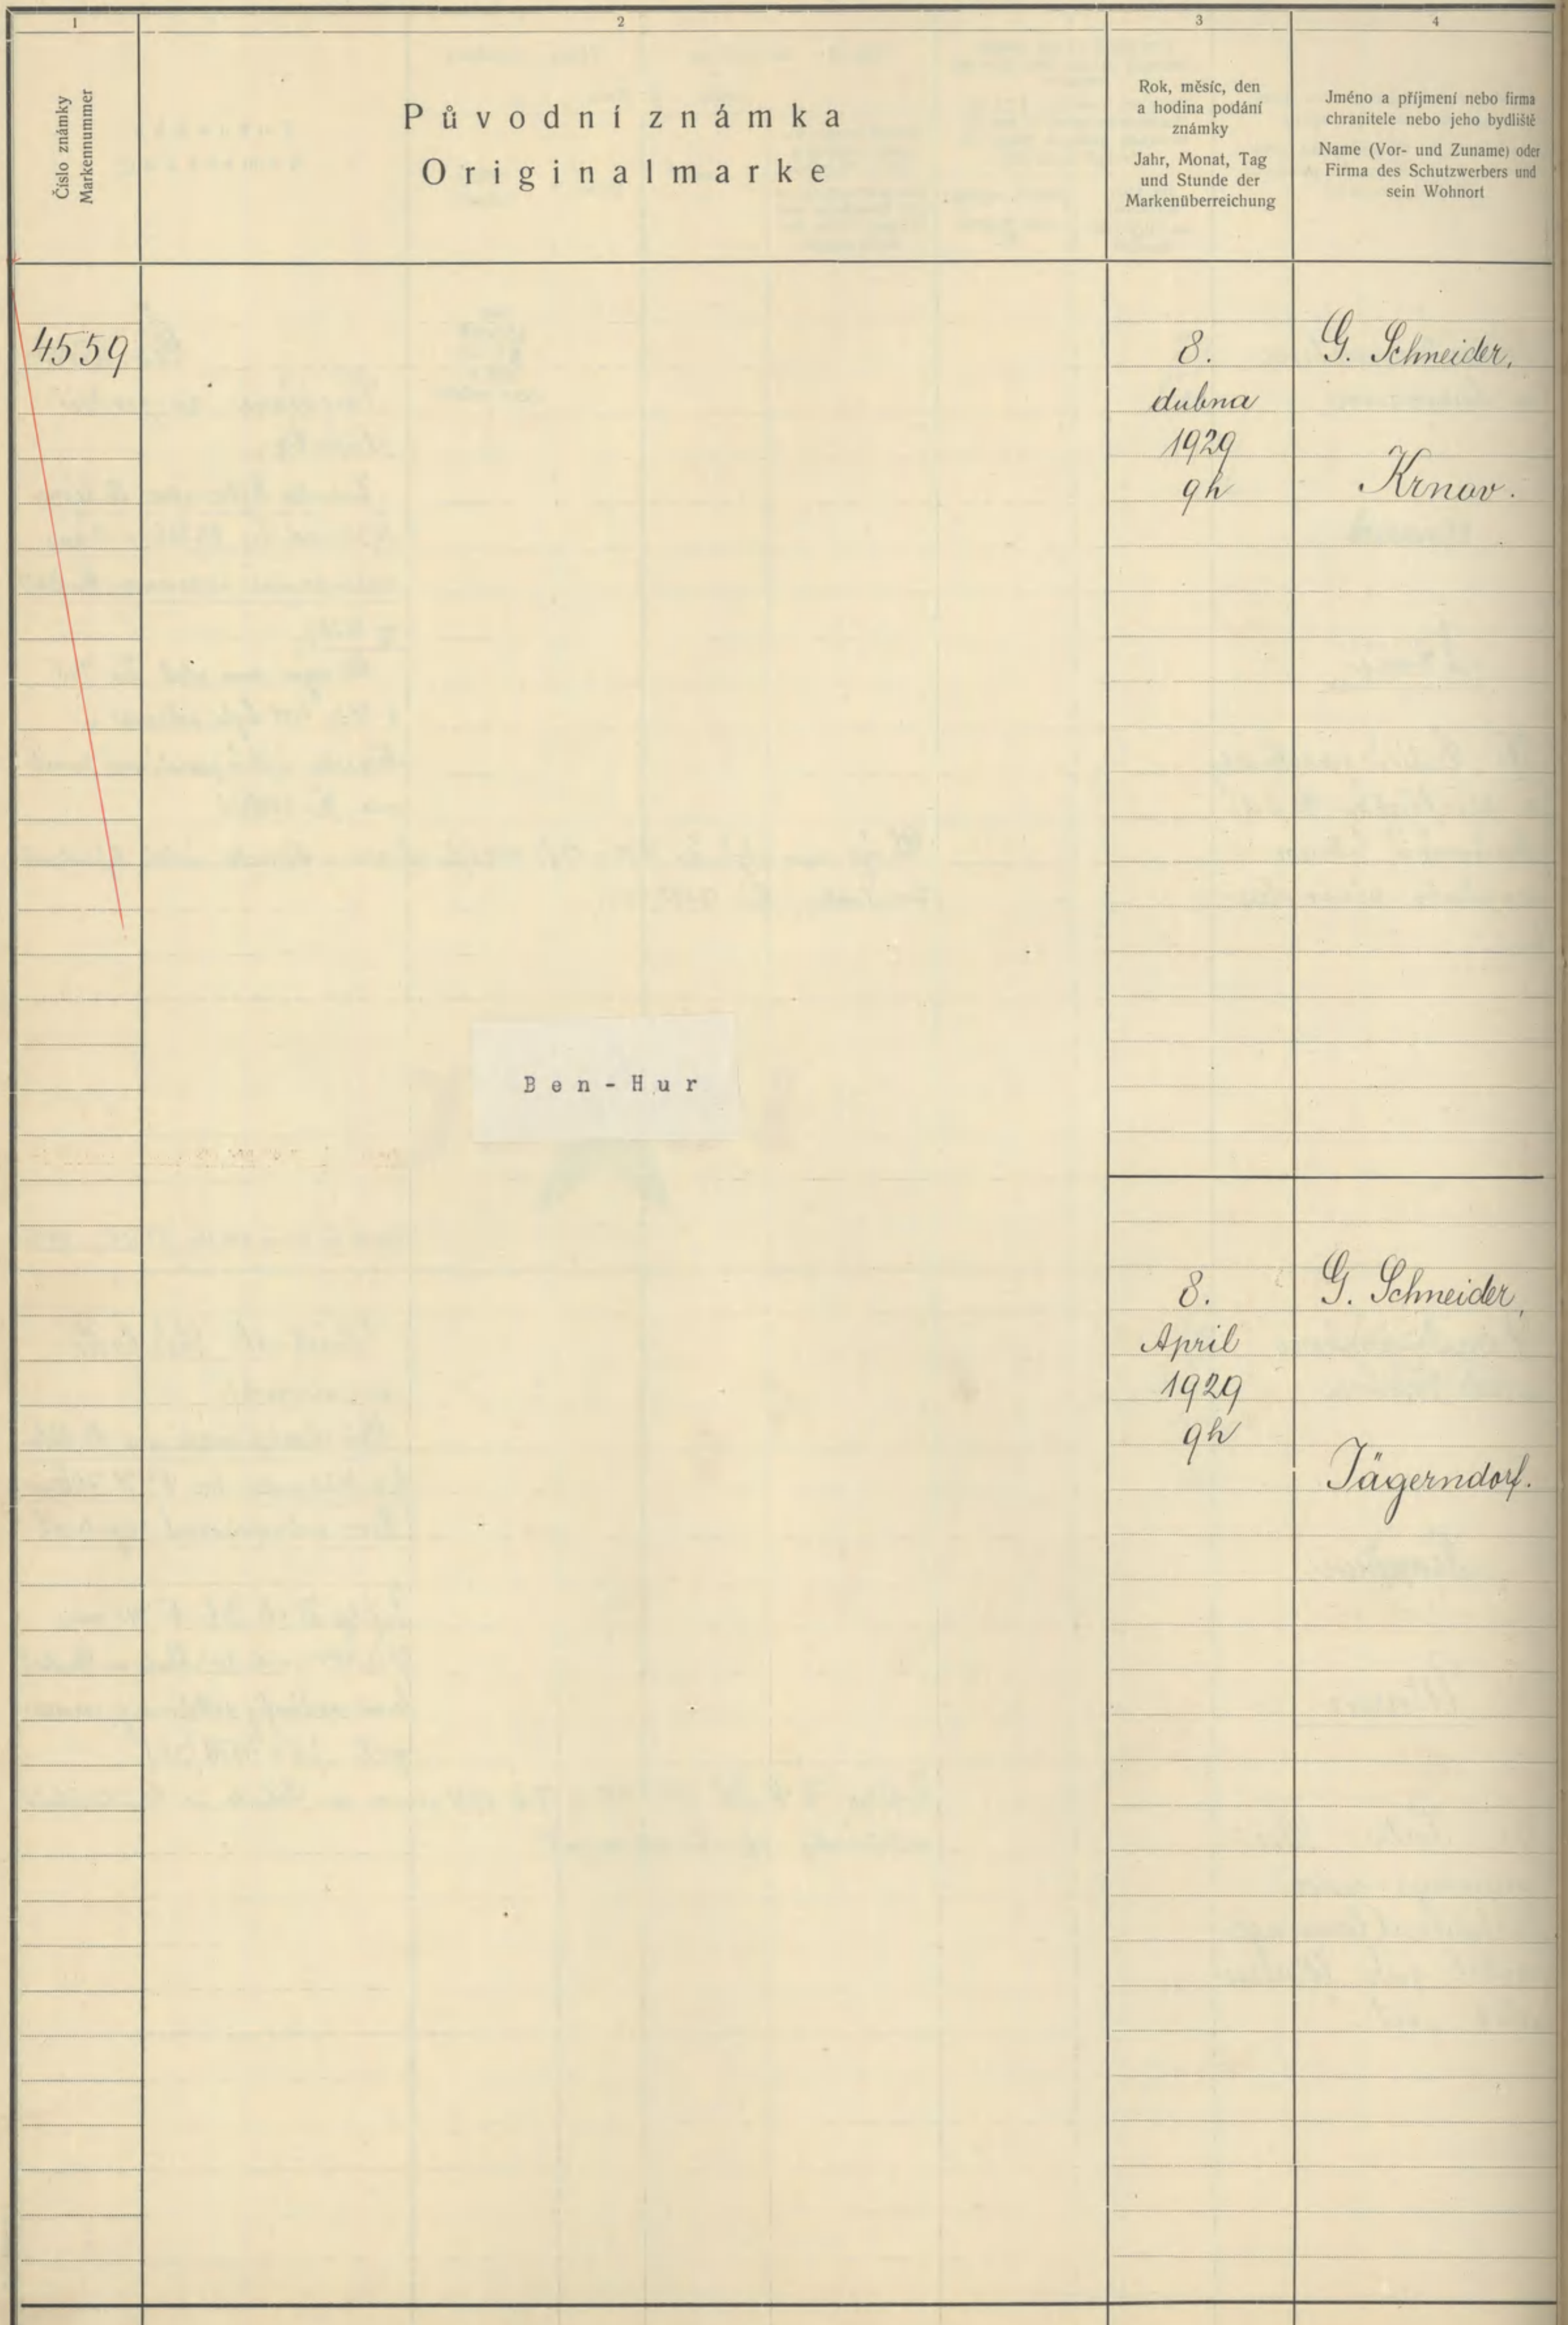 1
2
3
4
Číslo známky
Markennummer
Původní známka
Originalmarke
Rok, měsíc, den
a hodina podání
známky
Jahr, Monat, Tag
und Stunde der
Markenüberreichung
Jméno a příjmení nebo firma
chranitele nebo jeho bydliště
Name (Vor- und Zuname) oder
Firma des Schutzwerbers und
sein Wohnort
4559
8.
dubna
1929
9h
G. Schneider,
Krnov.
Ben-Hur
8.
April
1929
9h
G. Schneider,
Jägerndorf.